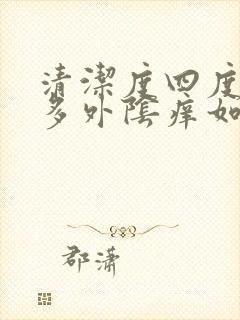 清潔度四度
多外陰痒如
郡潇